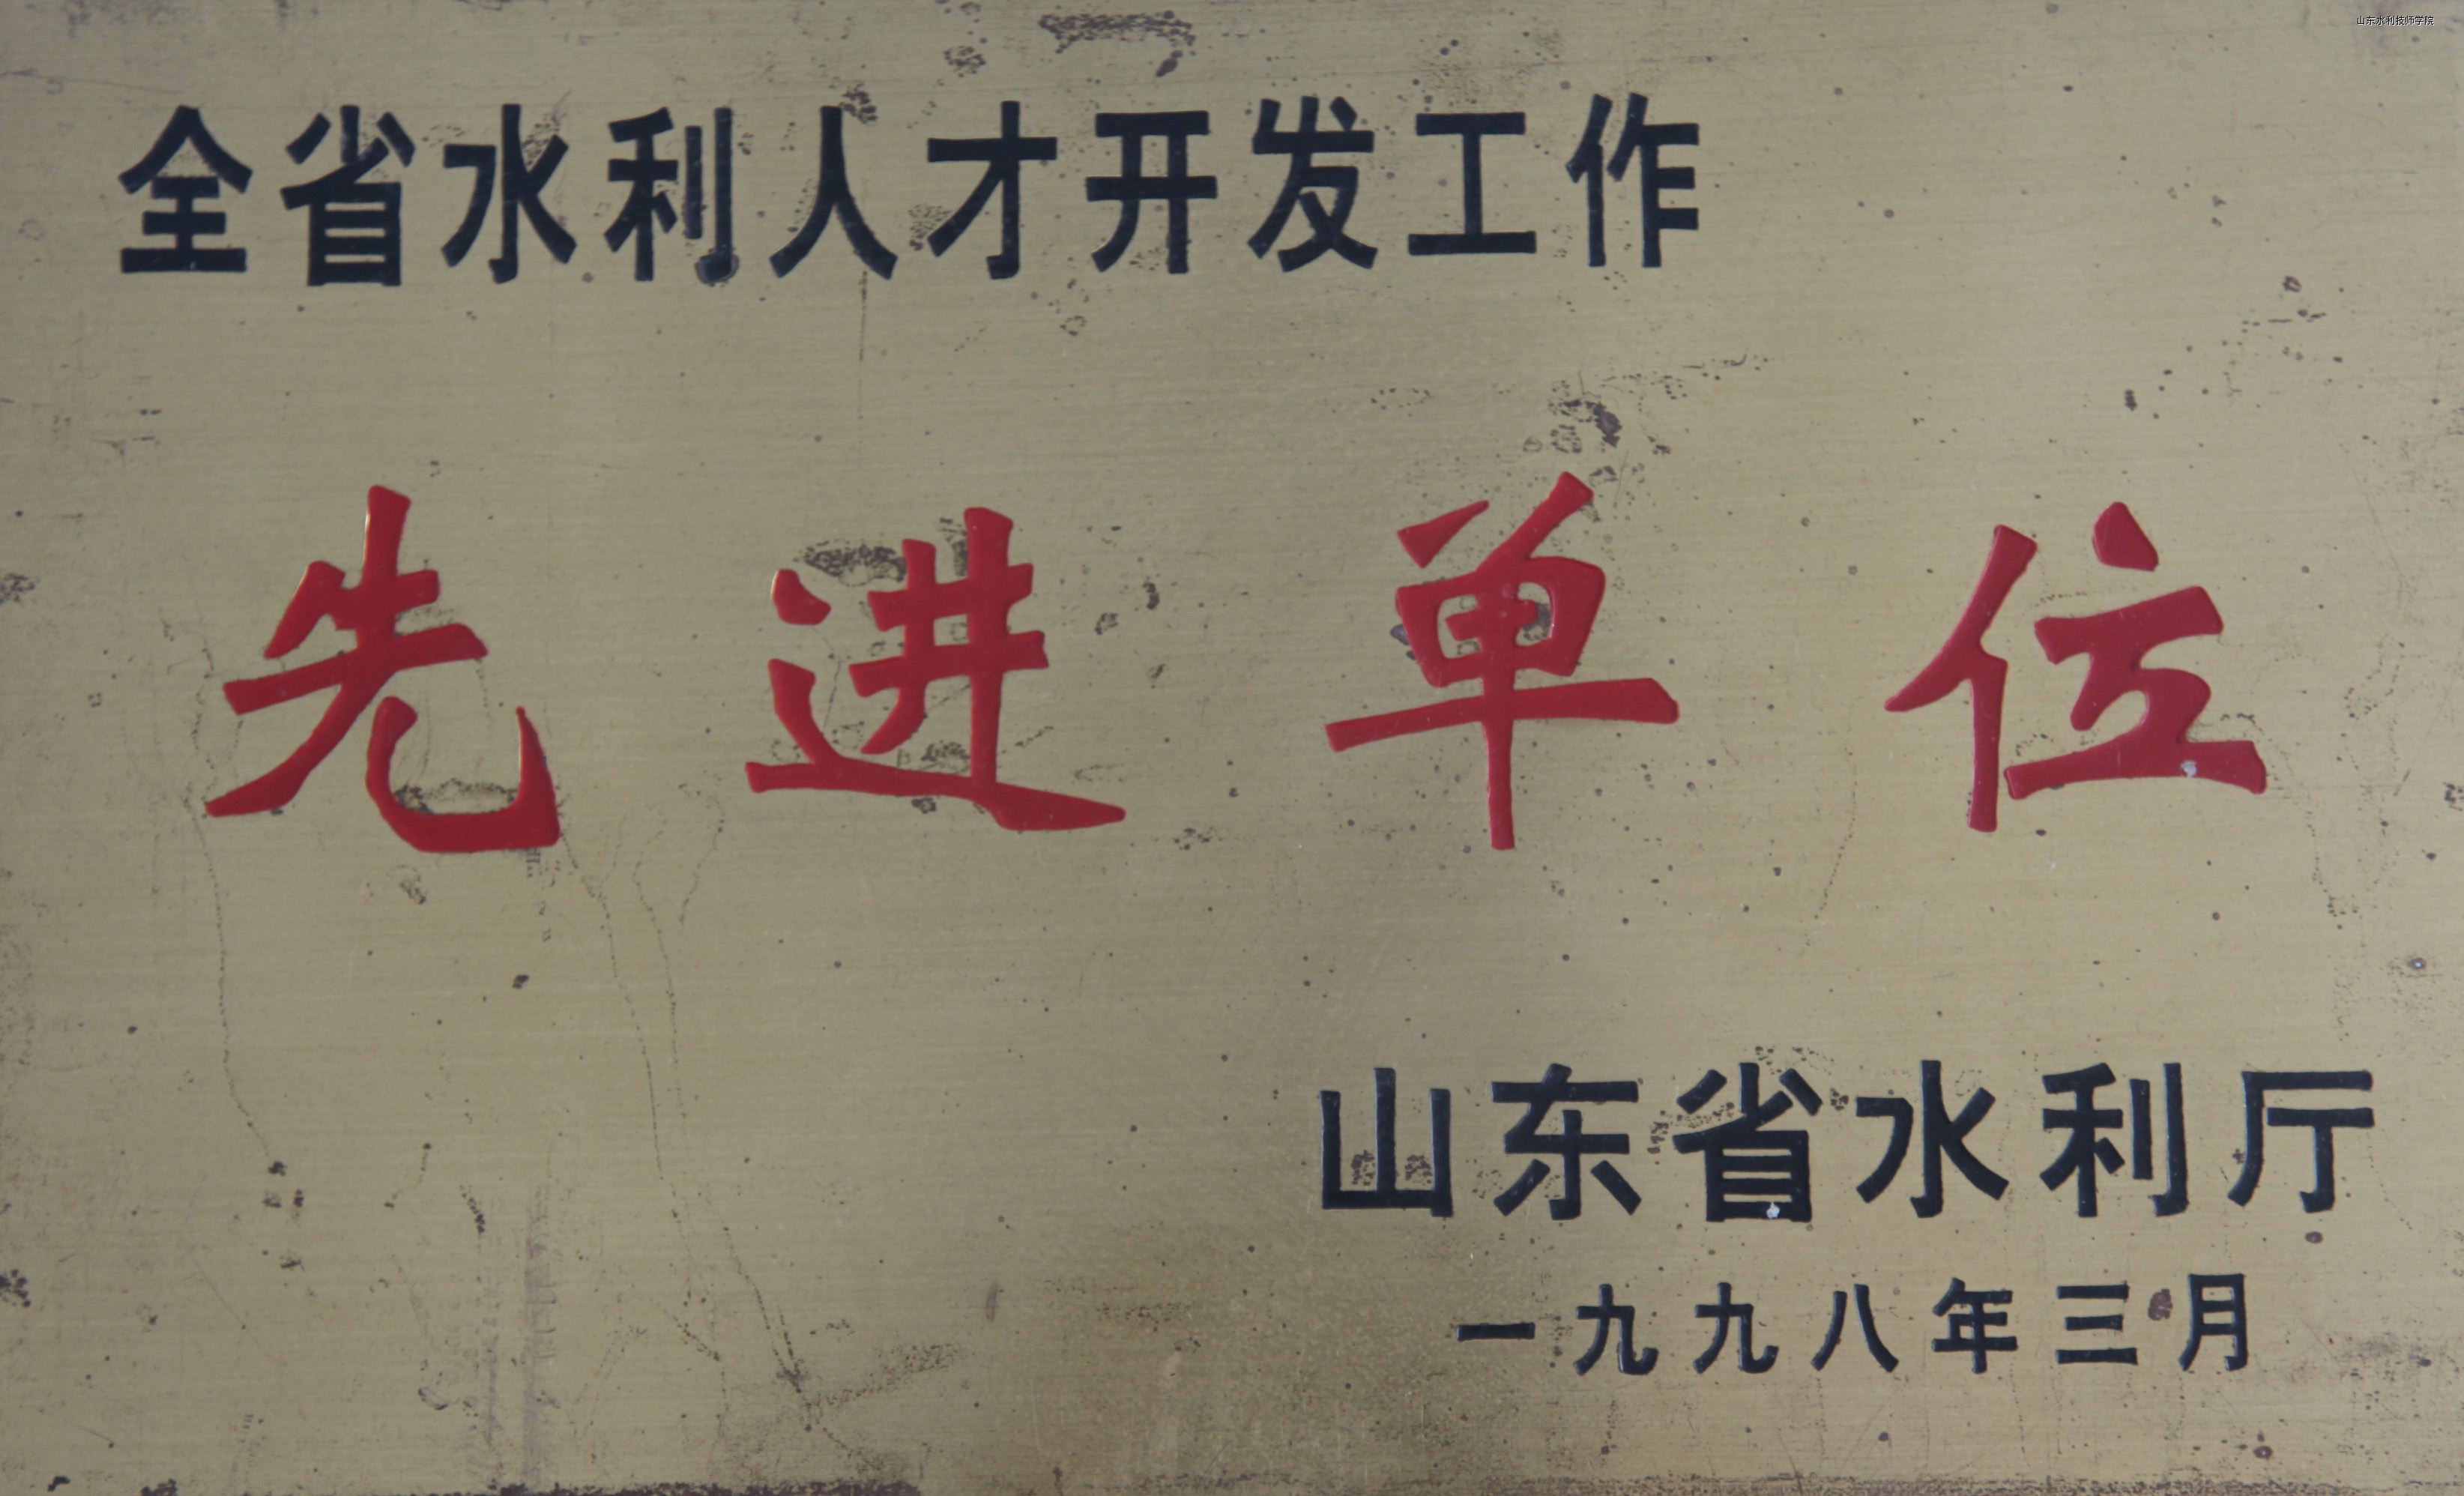 山东水利技师学院
全省水利人才开发工作
先进单位
山东省水利厅
一九九八年三月